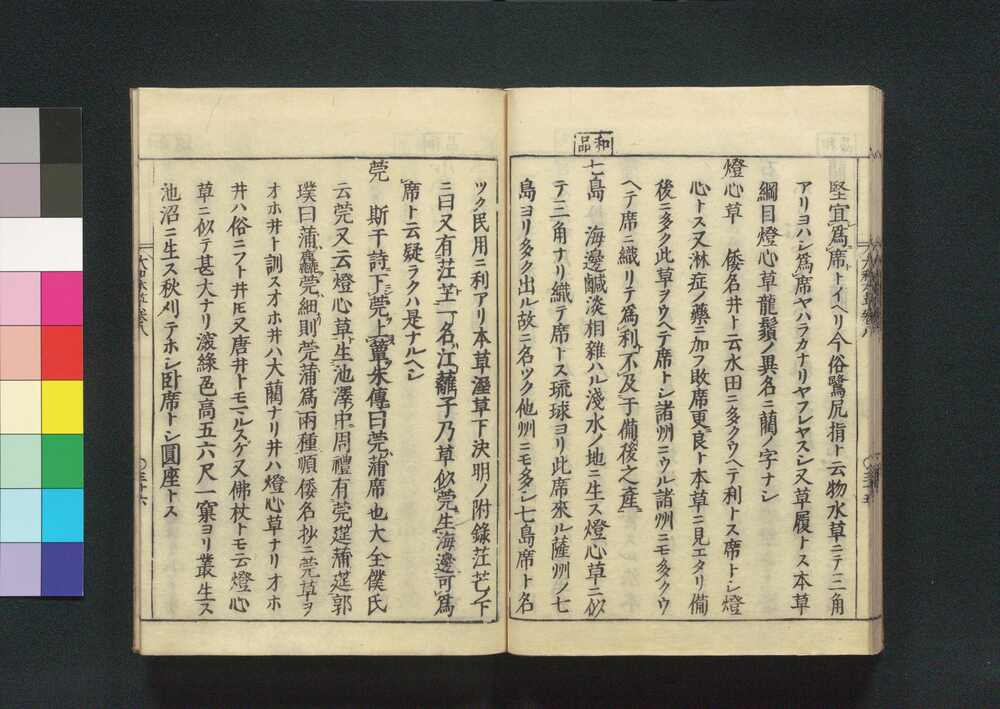 堅宜爲席トイヘリ今俗鷺尻指ト云物水草ニテ三角
アリヨハシ爲席ヤハラカナリヤフレヤスシ又草履トス本草
綱目燈心草龍鬚ノ異名ニ藺ノ字ナシ
燈心草 倭名井ト云水田ニ多クウヘテ利トス席トシ燈
心トス又淋症ノ藥ニ加フ敗席更良ト本草ニ見エタリ備
後ニ多ク此草ヲウヘテ席トシ諸州ニウル諸州ニモ多クウ
ヘテ席ニ織リテ爲利不及于備後之産
和品
七島 海邊鹹淡相雜ハル淺水ノ地ニ生ス燈心草ニ似
テ三角ナリ織テ席トス琉球ヨリ此席來ル薩州ノ七
島ヨリ多ク出ル故ニ名ツク他州ニモ多シ七島席ト名
ツク民用ニ利アリ本草溼草下決明ノ附錄茳芒ノ下
ニ曰又有茳芏一名江蘺子乃草似莞生海邊可爲
席ト云疑ラクハ是ナルヘシ
莞 斯干詩下莞上簟朱傳曰莞蒲席也大全僕氏
云莞又云燈心草生池澤中周禮有莞筵蒲筵郭
璞曰蒲麤莞細則莞蒲爲兩種順倭名抄ニ莞草ヲ
オホ井ト訓スオホ井ハ大藺ナリ井ハ燈心草ナリオホ
井ハ俗ニフト井トモ又唐井トモマルスゲ又佛杖トモ云燈心
草ニ似テ甚大ナリ深綠色高五六尺一窠ヨリ叢生ス
池沼ニ生ス秋刈テホシ臥席トシ圓座トス